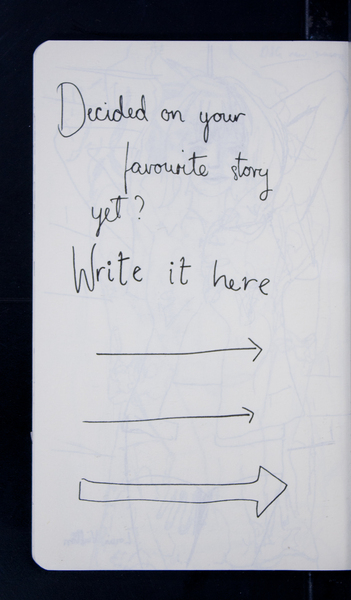 Decided on your
favourite story
yet?
Write it here